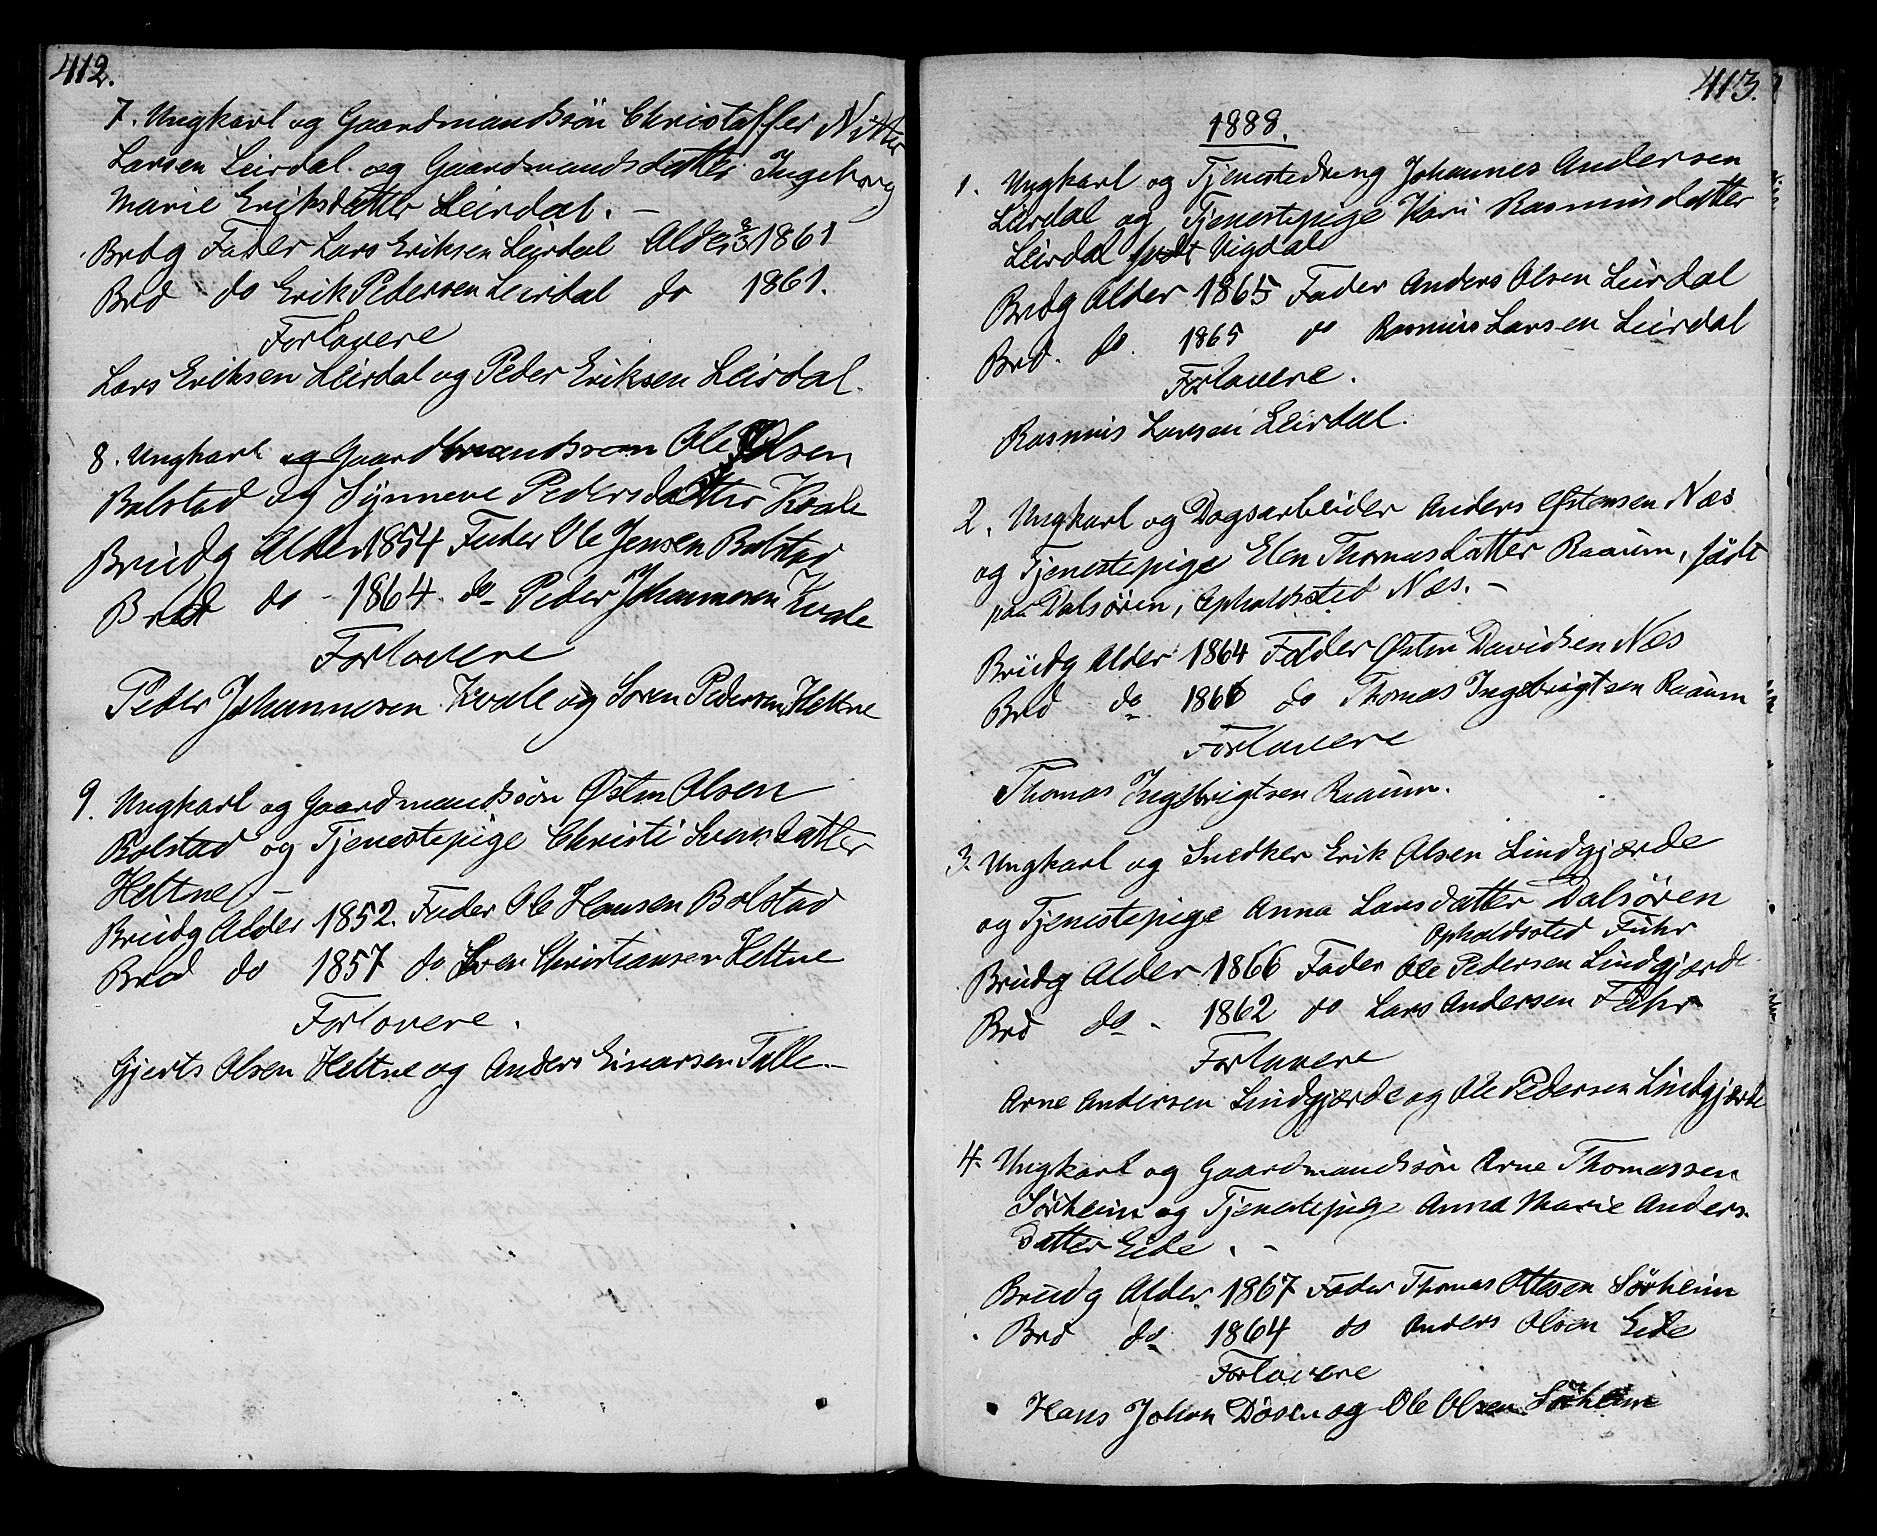 412.
7. Ungkarl og Gaardmandssön Christoffer Nitter
Larsen Leirdal og Gaardmandsdatter Ingeborg
Marie Eriksdatter Leirdal. –
Brdg Fader Lars Eriksen Leirdal Alder 1861
Brd do Erik Pedersen Leirdal do 1861.
Forlovere
Lars Eriksen Leirdal og Peder Eriksen Leirdal.
8. Ungkarl og Gaardmandssøn Ole Olsen
Bolstad og Synneve Pedersdatter Kvale
Brudg Alder 1854 Fader Ole Jensen Bolstad
Brud do - 1864. do Peder Johannesen Kvale
Forlovere
Peder Johannesen Kvale og Søren Pedersen Heltne
9. Ungkarl og Gaardmandssøn Østen Olsen
Bolstad og Tjenestepige Christi Svensdatter
Heltne –
Brudg Alder 1852. Fader Ole Hansen Bolstad
Brud do 1857 do Sven Christiansen Heltne
Forlovere.
Gjerts Olsen Heltne og Anders Einarsen Talle –
413.
1888.
1. Ungkarl og Tjenestedreng Johannes Andersen
Leirdal og Tjenestepige Kari Rasmusdatter
Leirdal født Vigdal
Brdg Alder 1865 Fader Anders Olsen Leirdal
Brd. do. 1865 do Rasmus Larsen Leirdal
Forlovere.
Rasmus Larsen Leirdal.
2. Ungkarl og Dagsarbeider Anders Østensen Næs
og Tjenestepige Elen Thomasdatter Raaum, født
paa Dalsøren, Opholdssted Næs. –
Brudg Alder 1864 Fader Østen Davidsen Næs
Brd do 1866 do Thomas Ingebrigtsen Raaum
Forlovere
Thomas Ingebrigtsen Raaum.
3. Ungkarl og Snedker Erik Olsen Lindgjærde
og Tjenestepige Anna Larsdatter Dalsøren
Opholdssted Fuhr
Brudg Alder 1866 Fader Ole Pedersen Lindgjærde
Brd do - 1862 do Lars Andersen Fuhr
Forlovere
Arne Andersen Lindgjærde og Ole Pedersen Lindgjærde
4. Ungkarl og Gaardmandssøn Arne Thomassen
Sørheim og Tjenestepige Anna Marie Anders-
datter Eide. –
Brudg Alder 1867 Fader Thomas Ottesen Sørheim
Brd do 1864 do Anders Olsen Eide
Forlovere
Hans Johan Døsen og Ole Olsen Sørheim